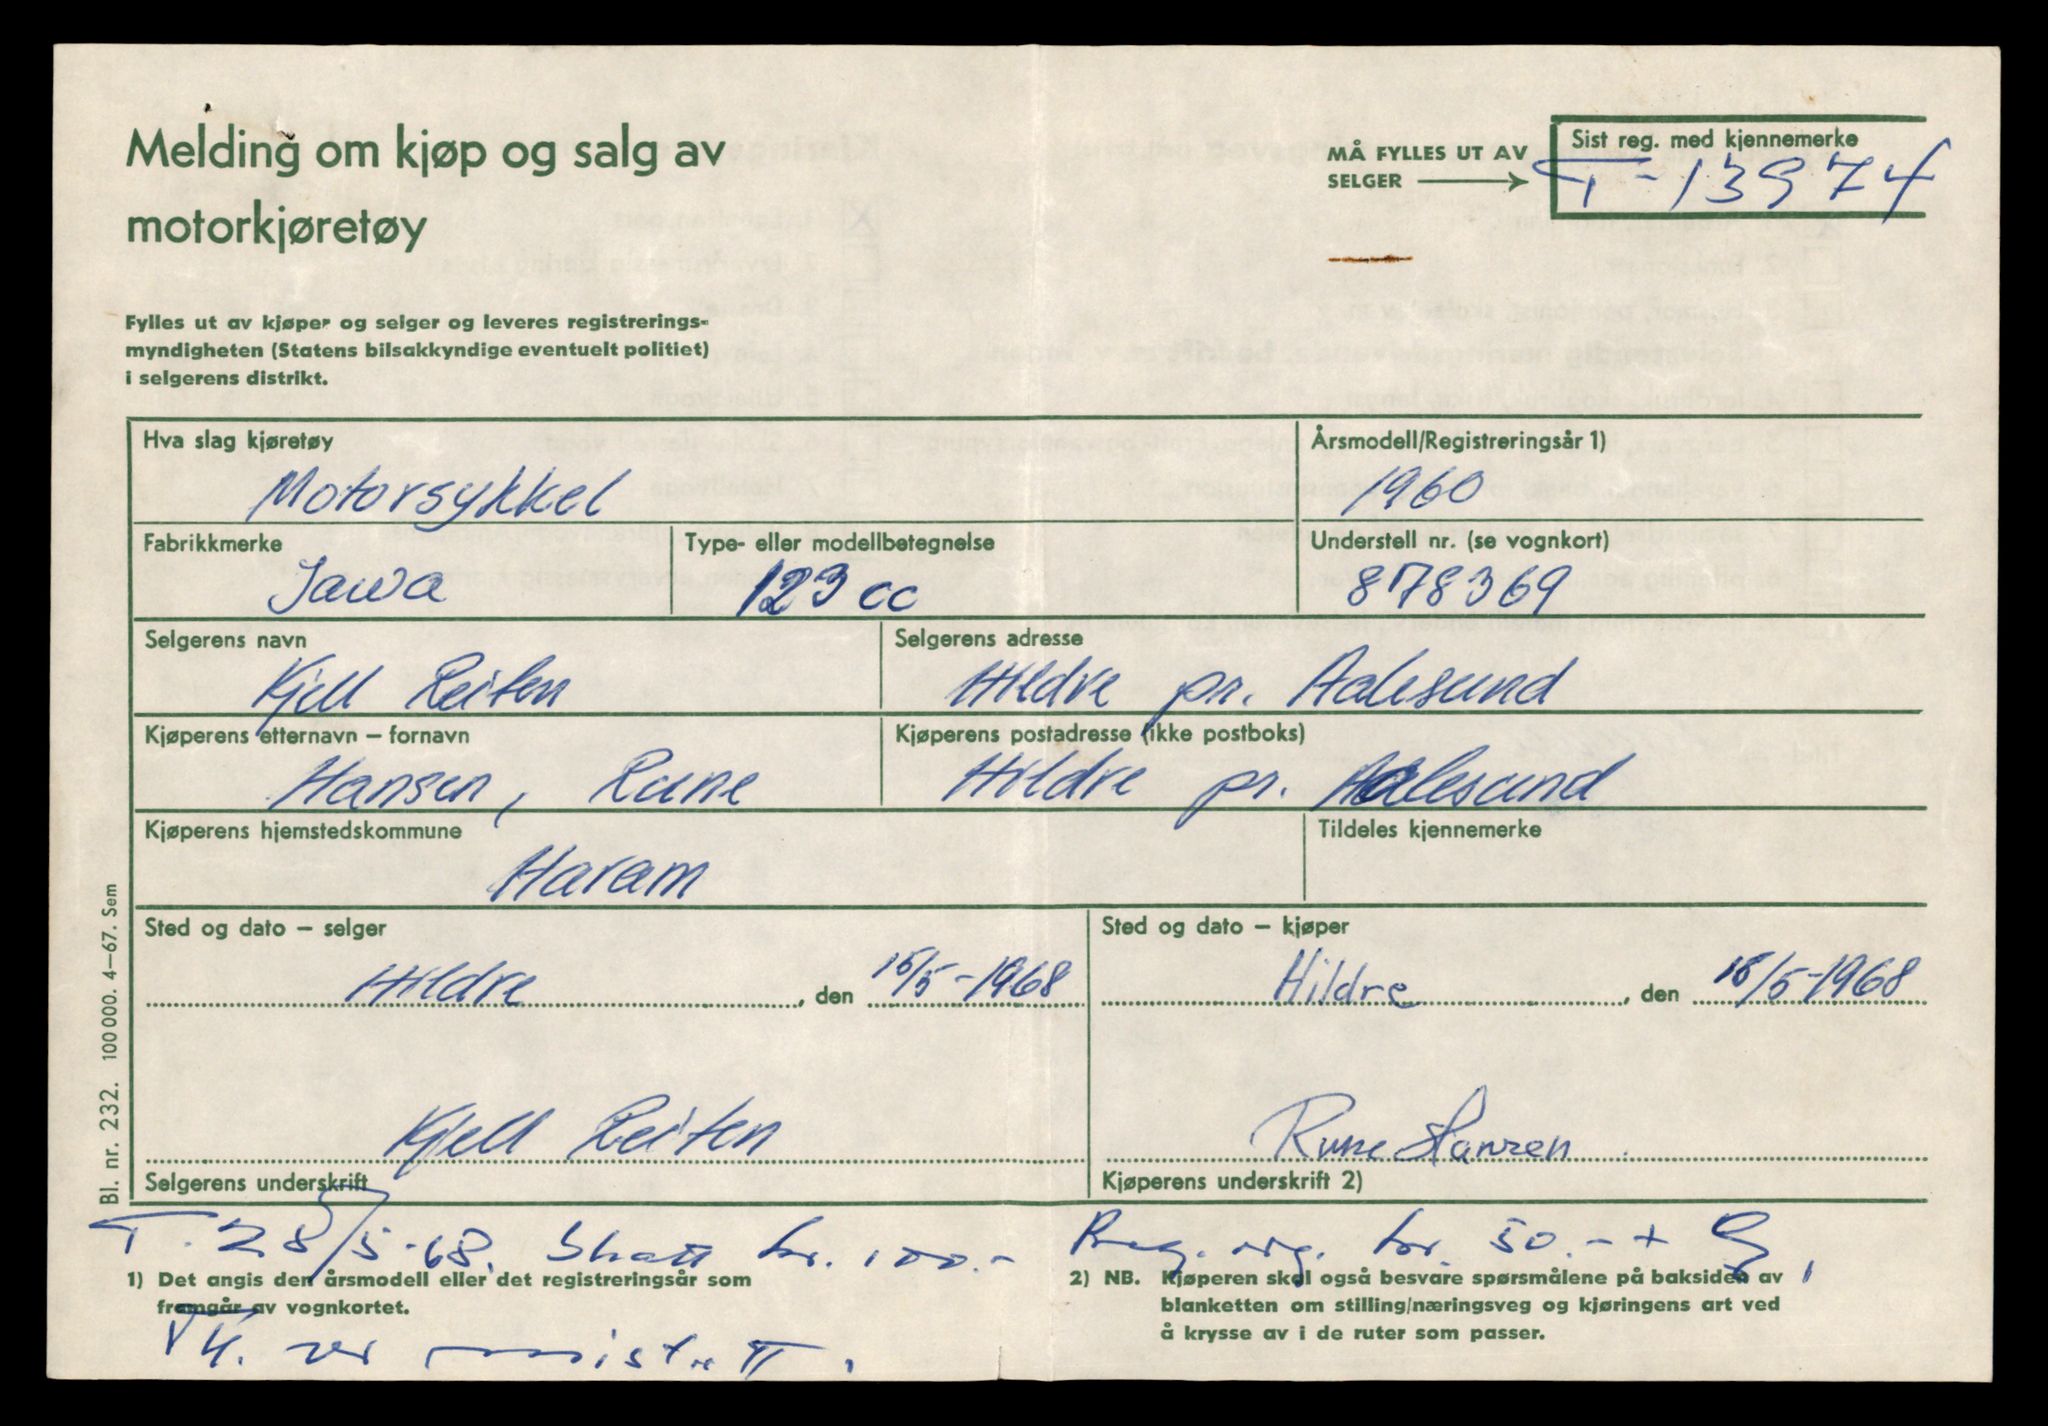 Melding om kjøp og salg av
motorkjøretøy
MÅ FYLLES UT AV
SELGER
Sist reg. med kjennemerke
T-13974
Fylles ut av kjøper og selger og leveres registrerings-
myndigheten (Statens bilsakkyndige eventuelt politiet)
i selgerens distrikt.
Hva slag kjøretøy
Motorsykkel
Årsmodell/Registreringsår 1)
1960
Fabrikkmerke
Jawa
Type- eller modellbetegnelse
123 cc
Understell nr. (se vognkort)
878369
Selgerens navn
Kjell Reiten
Selgerens adresse
Hildre pr. Aalesund
Kjøperens etternavn – fornavn
Hansen, Rune
Kjøperens postadresse (ikke postboks)
Hildre pr. Aalesund
Kjøperens hjemstedskommune
Haram
Tildeles kjennemerke
Sted og dato – selger
Hildre, den 15/5-1968
Sted og dato – kjøper
Hildre, den 15/5-1968
Kjell Reiten
Selgerens underskrift
Rune Hansen
Kjøperens underskrift 2)
T. 28/5-68. Skatt kr. 100.- Reg. avg. kr. 50.- +
1) Det angis den årsmodell eller det registreringsår som
fremgår av vognkortet.
2) NB. Kjøperen skal også besvare spørsmålene på baksiden av
blanketten om stilling/næringsveg og kjøringens art ved
å krysse av i de ruter som passer.
Bl. nr. 232. 100 000. 4–67. Sem